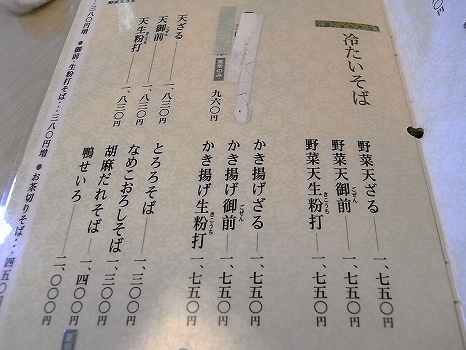 冷たいそば
野菜天ざる 一、七五〇円
野菜天御前 一、七五〇円
ごぜん
野菜天生粉打 一、七五〇円
きこうち
かき揚げざる 一、七五〇円
かき揚げ御前 一、七五〇円
ごぜん
かき揚げ生粉打 一、七五〇円
きこうち
夏季のみ 九六〇円
天ざる 一、八三〇円
天御前 一、八三〇円
ごぜん
天生粉打 一、八三〇円
きこうち
とろろそば 一、三〇〇円
なめこおろしそば 一、三〇〇円
胡麻だれそば 一、四〇〇円
鴨せいろ 二、〇〇〇円
野菜天ざる
三八〇円増 ●御前・生粉打そば・・・三八〇円増 ●お茶切りそば・・・四五〇円
円